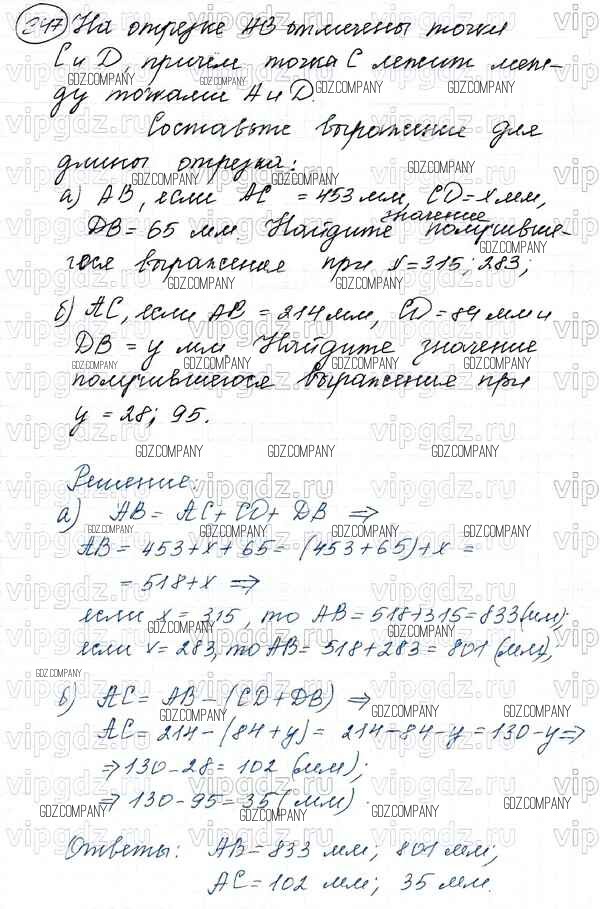 247 На отрезке AB отмечены точки
C и D, причём точка C лежит меж-
ду точками A и D.
Составьте выражение для
длины отрезка:
а) AB, если AC = 453 мм, CD = x мм,
значение
DB = 65 мм. Найдите получивше-
гося выражение при x = 315; 283;
б) AC, если AB = 214 мм, CD = 84 мм и
DB = y мм. Найдите значение
получившегося выражение при
y = 28; 95.
Решение:
а) AB = AC + CD + DB ⇒
AB = 453 + x + 65 = (453 + 65) + x =
= 518 + x ⇒
если x = 315, то AB = 518 + 315 = 833 (мм);
если x = 283, то AB = 518 + 283 = 801 (мм);
б) AC = AB - (CD + DB) ⇒
AC = 214 - (84 + y) = 214 - 84 - y = 130 - y ⇒
⇒ 130 - 28 = 102 (мм);
⇒ 130 - 95 = 35 (мм).
Ответы: AB = 833 мм; 801 мм;
AC = 102 мм; 35 мм.
vipgdz.ru
GDZ.COMPANY